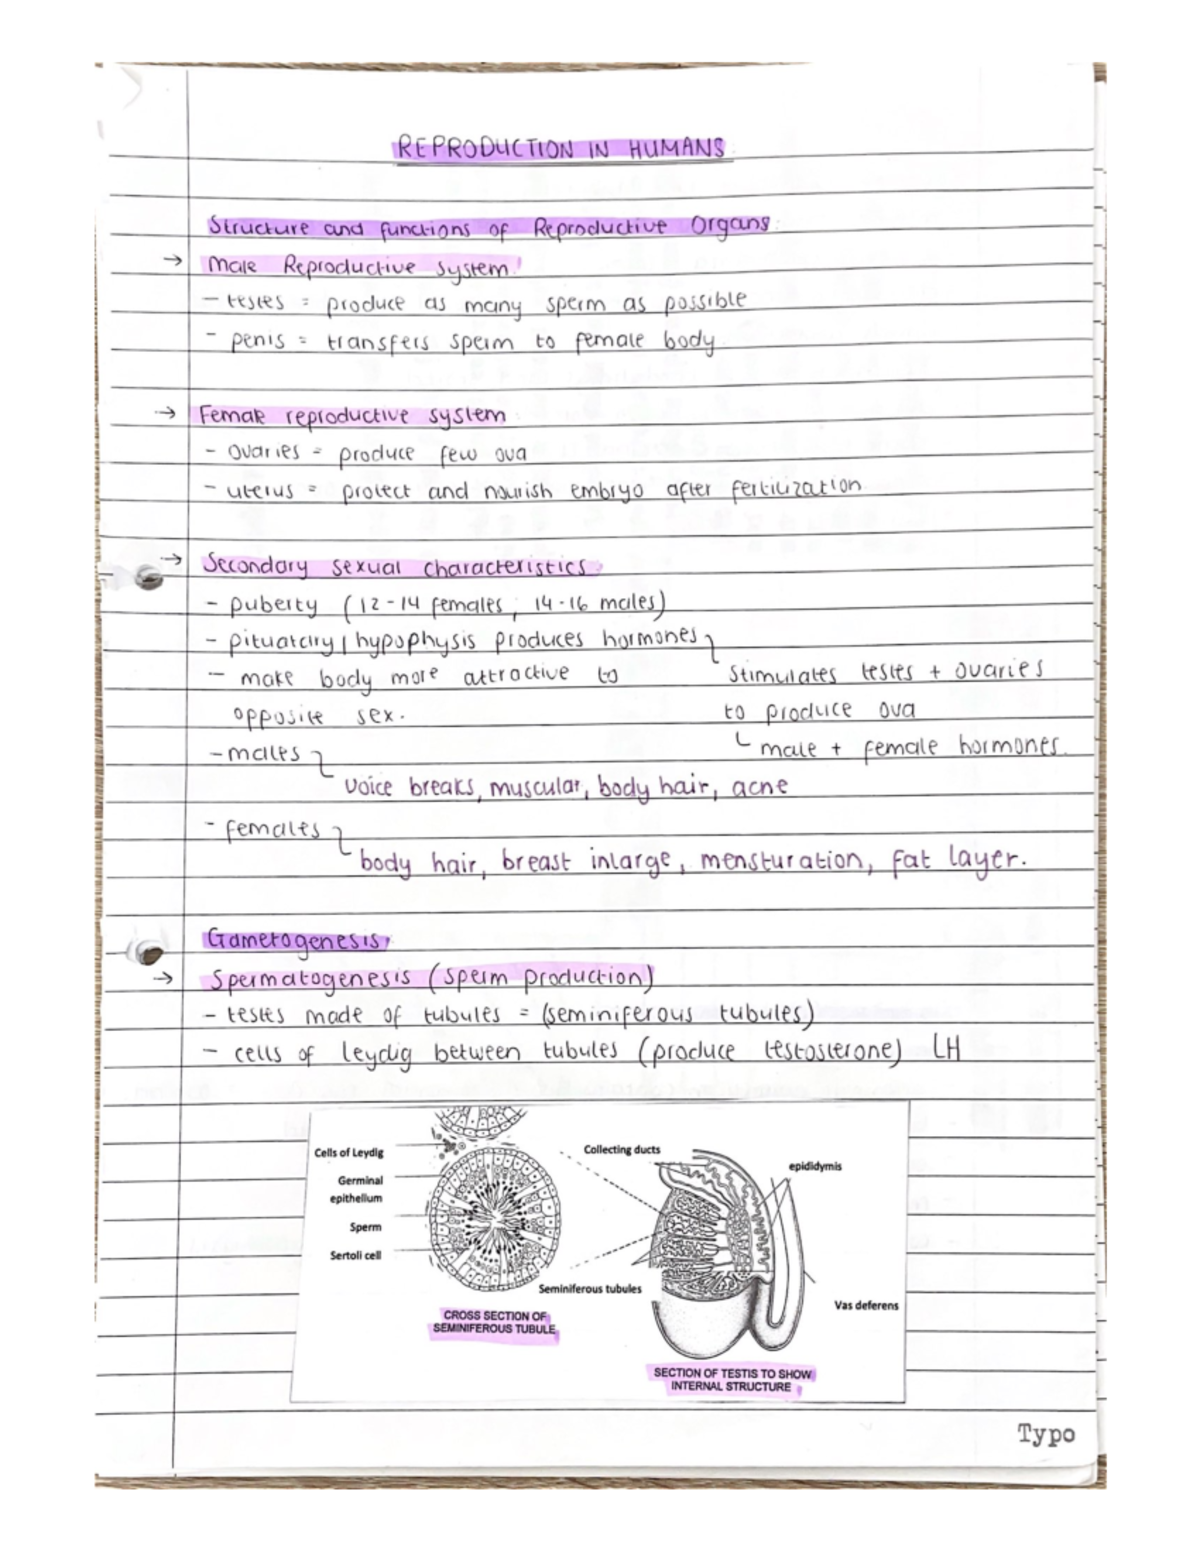 REPRODUCTION IN HUMANS
Structure and functions of Reproductive Organs
→ Male Reproductive system
- testes = produce as many sperm as possible
- penis = transfers sperm to female body
→ Female reproductive system
- ovaries = produce few ova
- uterus = protect and nourish embryo after fertilization
→ Secondary sexual characteristics
- puberty (12-14 females, 14-16 males)
- pituatary / hypophysis produces hormones
- make body more attractive to
opposite sex.
stimulates testes + ovaries
to produce ova
male + female hormones.
- males
voice breaks, muscular, body hair, acne
- females
body hair, breast inlarge, mensturation, fat layer.
Gametogenesis
→ Spermatogenesis (sperm production)
- testes made of tubules = (seminiferous tubules)
- cells of leydig between tubules (produce testosterone) LH
Cells of Leydig
Germinal
epithelium
Sperm
Sertoli cell
CROSS SECTION OF
SEMINIFEROUS TUBULE
Collecting ducts
epididymis
Seminiferous tubules
Vas deferens
SECTION OF TESTIS TO SHOW
INTERNAL STRUCTURE
Typo